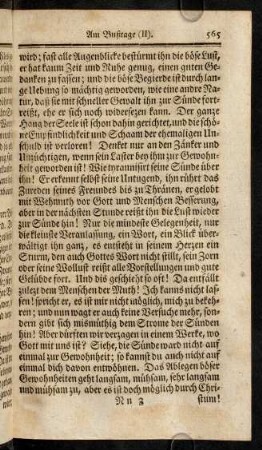 Am Bustage (II). 565
wird; fast alle Augenblicke bestürmt ihn die böse Lust,
er hat kaum Zeit und Ruhe genug, einen guten Ge-
danken zu fassen; und die böse Begierde ist durch lan-
ge Uebung so mächtig geworden, wie eine andre Na-
tur, daß sie mit schneller Gewalt ihn zur Sünde fort-
reißt, ehe er sich noch widersetzen kann. Der ganze
Hang der Seele ist schon dahin gerichtet, und die schö-
ne Empfindlichkeit und Schaam der ehemaligen Un-
schuld ist verloren! Denket nur an den Zänker und
Unzüchtigen, wenn sein Laster bey ihm zur Gewohn-
heit geworden ist! Wie tyrannisirt seine Sünde über
ihn! Er erkennt selbst seine Untugend, ihn rührt das
Zureden seines Freundes bis zu Thränen, er gelobt
mit Wehmuth vor Gott und Menschen Besserung,
aber in der nächsten Stunde reißt ihn die Lust wieder
zur Sünde hin! Nur die mindeste Gelegenheit, nur
die kleinste Veranlassung, ein Wort, ein Blick über-
wältigt ihn ganz, es entsteht in seinem Herzen ein
Sturm, den auch Gottes Wort nicht stillt, sein Zorn
oder seine Wollust reißt alle Vorstellungen und gute
Gelübde fort. Und dis geschieht so oft! Da entfällt
zuletzt dem Menschen der Muth! Ich kanns nicht las-
sen! spricht er, es ist mir nicht möglich, mich zu bekeh-
ren; und nun wagt er auch keine Versuche mehr, son-
dern gibt sich mismüthig dem Strome der Sünden
hin! Aber dürften wir verzagen in einem Werke, wo
Gott mit uns ist? Siehe, die Sünde ward nicht auf
einmal zur Gewohnheit; so kannst du auch nicht auf
einmal dich davon entwöhnen. Das Ablegen böser
Gewohnheiten geht langsam, mühsam, sehr langsam
und mühsam zu, aber es ist doch möglich durch Chri-
N n 3 stum!